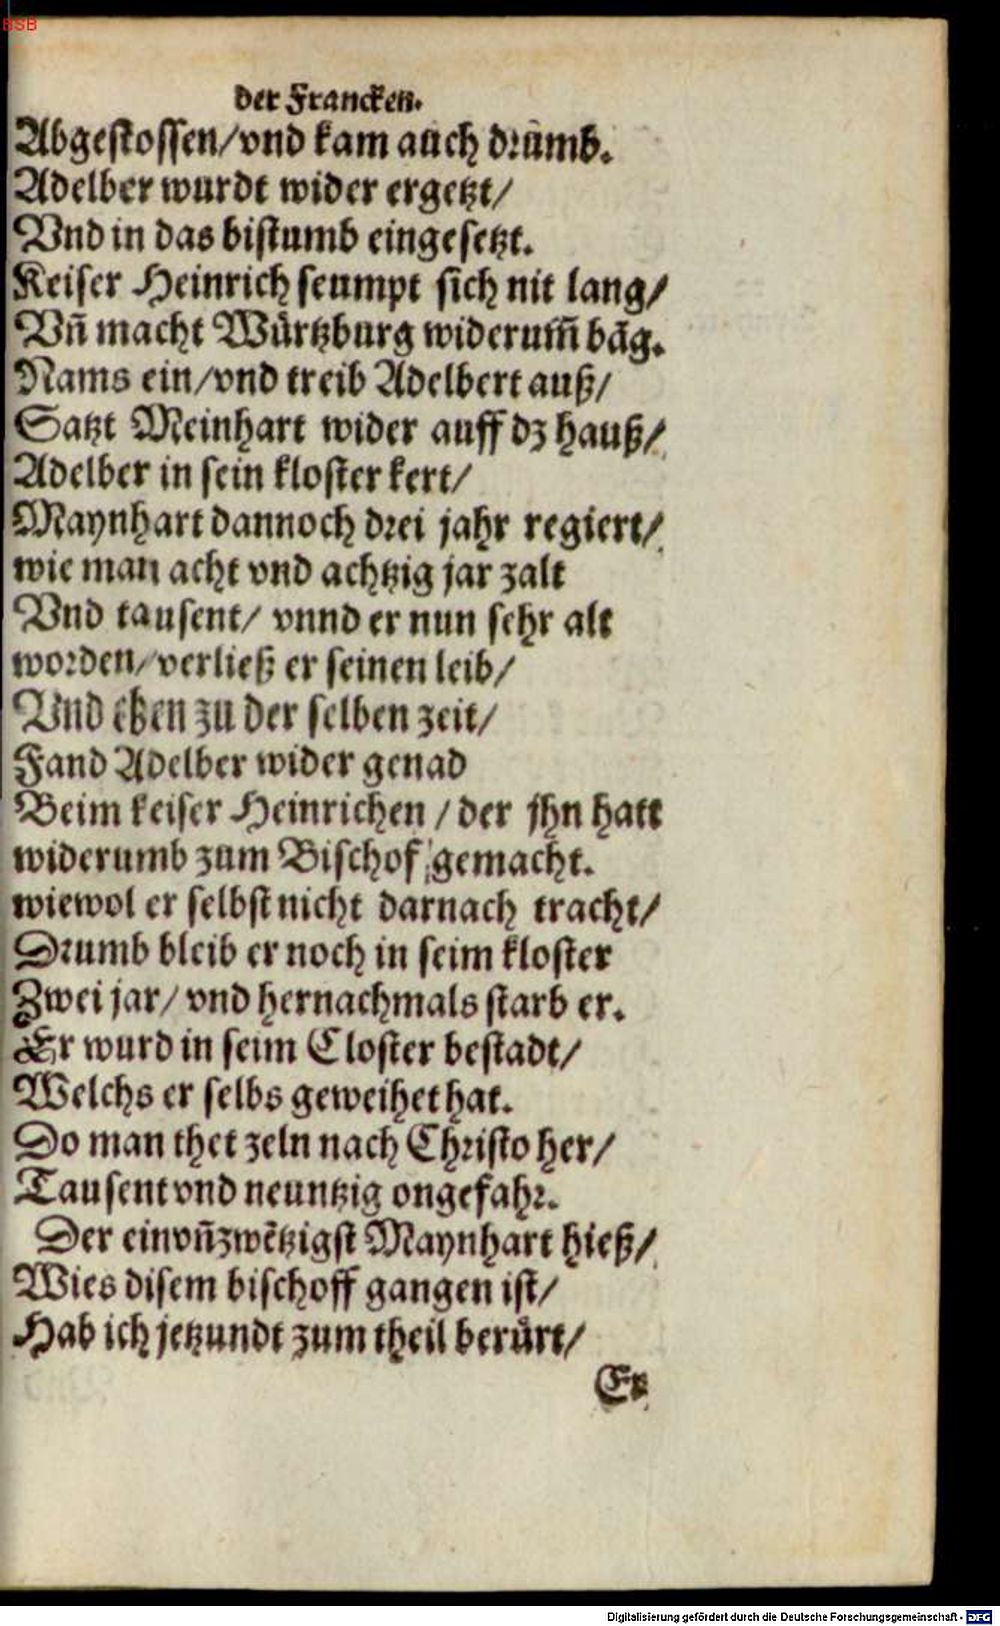 BSB
der Francken.
Abgestossen/vnd kam auch drumb.
Adelber wurdt wider ergetzt/
Vnd in das bistumb eingesetzt.
Keiser Heinrich seumpt sich nit lang/
Vñ macht Würtzburg widerum̃ bãg.
Nams ein/vnd treib Adelbert auß/
Satzt Meinhart wider auff dz hauß/
Adelber in sein kloster kert/
Maynhart dannoch drei jahr regiert/
wie man acht vnd achtzig jar zalt
Vnd tausent/ vnnd er nun sehr alt
worden/verließ er seinen leib/
Vnd eben zu der selben zeit/
Fand Adelber wider genad
Beim keiser Heinrichen / der jhn hatt
widerumb zum Bischof gemacht.
wiewol er selbst nicht darnach tracht/
Drumb bleib er noch in seim kloster
Zwei jar/ vnd hernachmals starb er.
Er wurd in seim Closter bestadt/
Welchs er selbs geweihet hat.
Do man thet zeln nach Christo her/
Tausent vnd neuntzig ongefahr.
Der einvñzwẽtzigst Maynhart hieß/
Wies disem bischoff gangen ist/
Hab ich jetzundt zum theil berürt/
Er
Digitalisierung gefördert durch die Deutsche Forschungsgemeinschaft - DFG